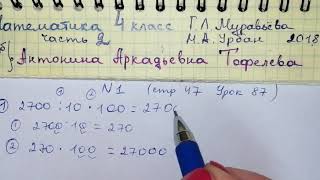 Математика 4 класс Г.Л. Муравьёва
часть 2 М.А. Урбан 2018
б) Антонина Аркадьевна Тофелева
N1 (стр 47 Урок 87)
① ②
① 2700 : 10 · 100 = 270
① 2700 : 10 = 270
② 270 · 100 = 27000